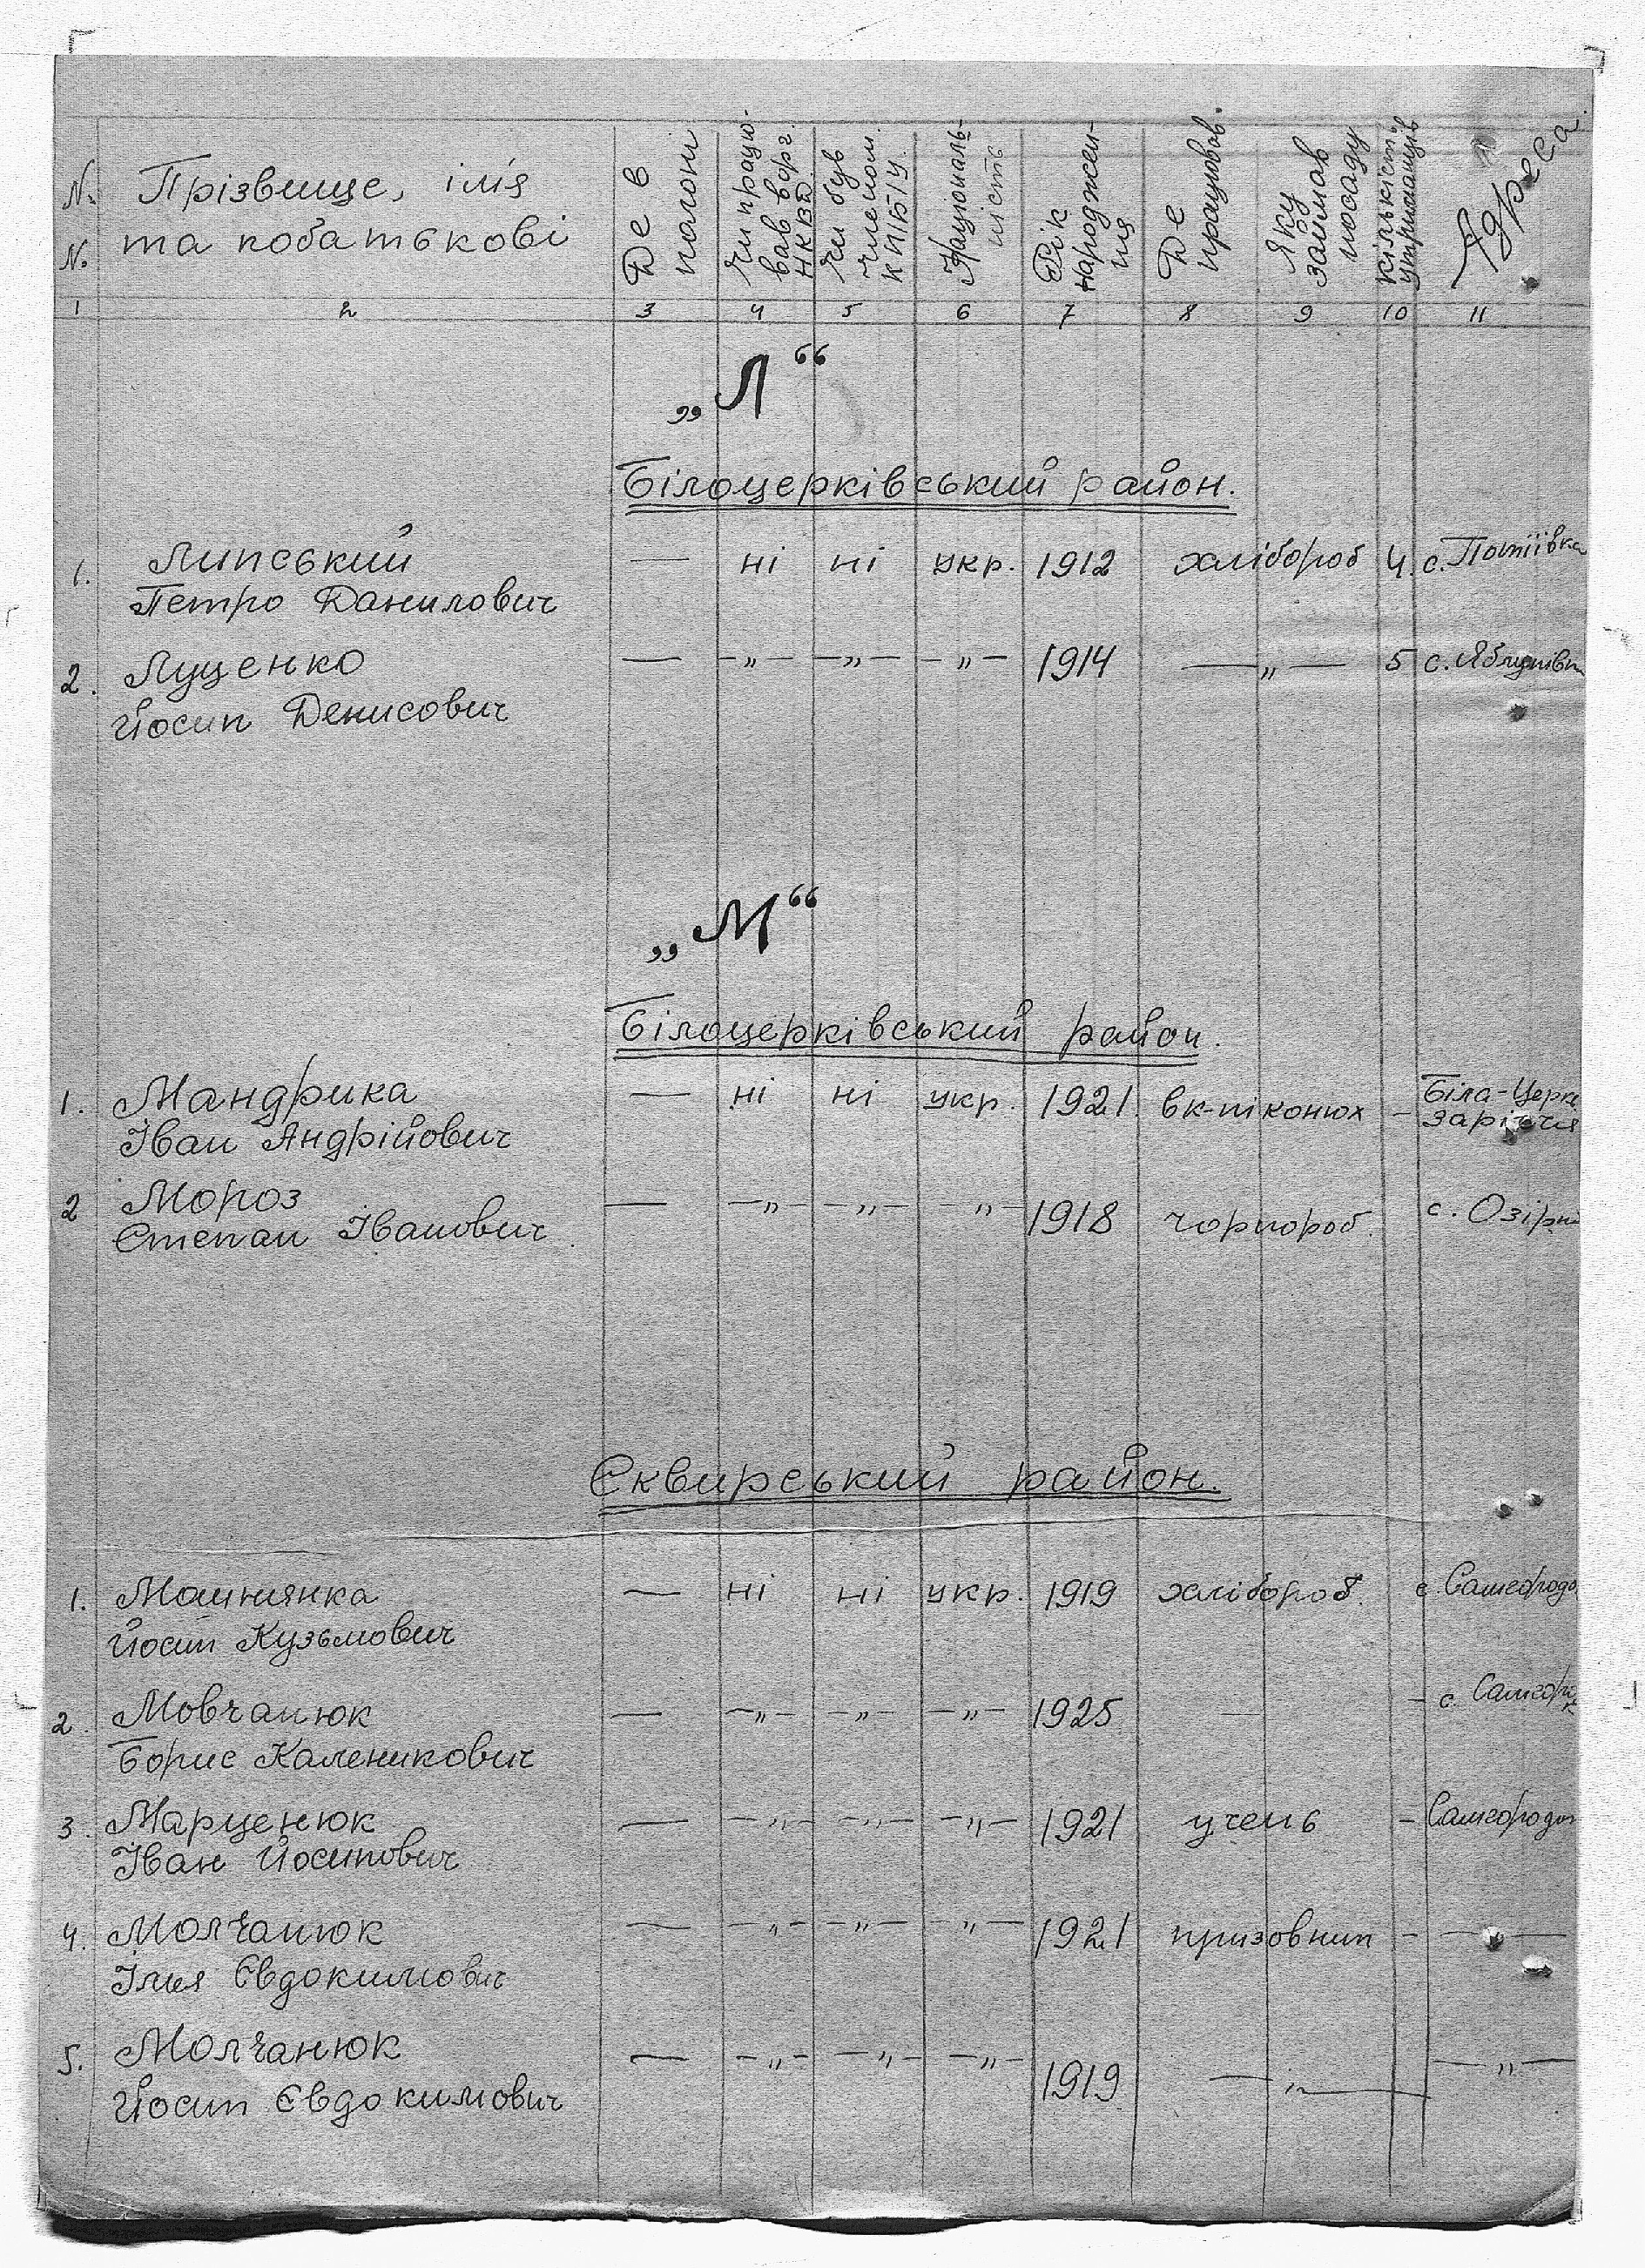 № № Прізвище, ім'я та побатькові Де в полоні Чи працював в орг. НКВД Чи був членом КП(б)У. Національність Рік народження Де працював. Яку займав посаду кількість утриманців Адреса.
1 2 3 4 5 6 7 8 9 10 11
„Л“
Білоцерківський район.
1. Липський — ні ні укр. 1912 хлібороб 4. с. Потіївка
Петро Данилович
2. Луценко — —„— —„— —„— 1914 —„— 5 с. Яблунівк
Йосип Денисович
„М“
Білоцерківський район.
1. Мандрика — ні ні укр. 1921. вк-пі конюх – Біла-Церк.
Іван Андрійович Заріччя
2 Мороз — —„— —„— —„— 1918 чорнороб. с. Озірн
Степан Іванович
Сквирський район.
1. Машнянка — ні ні укр. 1919 хлібороб. с. Самгородо
Йосип Кузьмович
2. Мовчанюк — —„— —„— —„— 1925 — – с. Самгор
Борис Каленикович
3. Марценюк — —„— —„— —„— 1921 учень – Самгородок
Іван Йосипович
4. Молчанюк — —„— —„— —„— 1921 призовник – —„—
Ілья Євдокимович
5. Молчанюк — —„— —„— —„— 1919 —„— —„—
Йосип Євдокимович